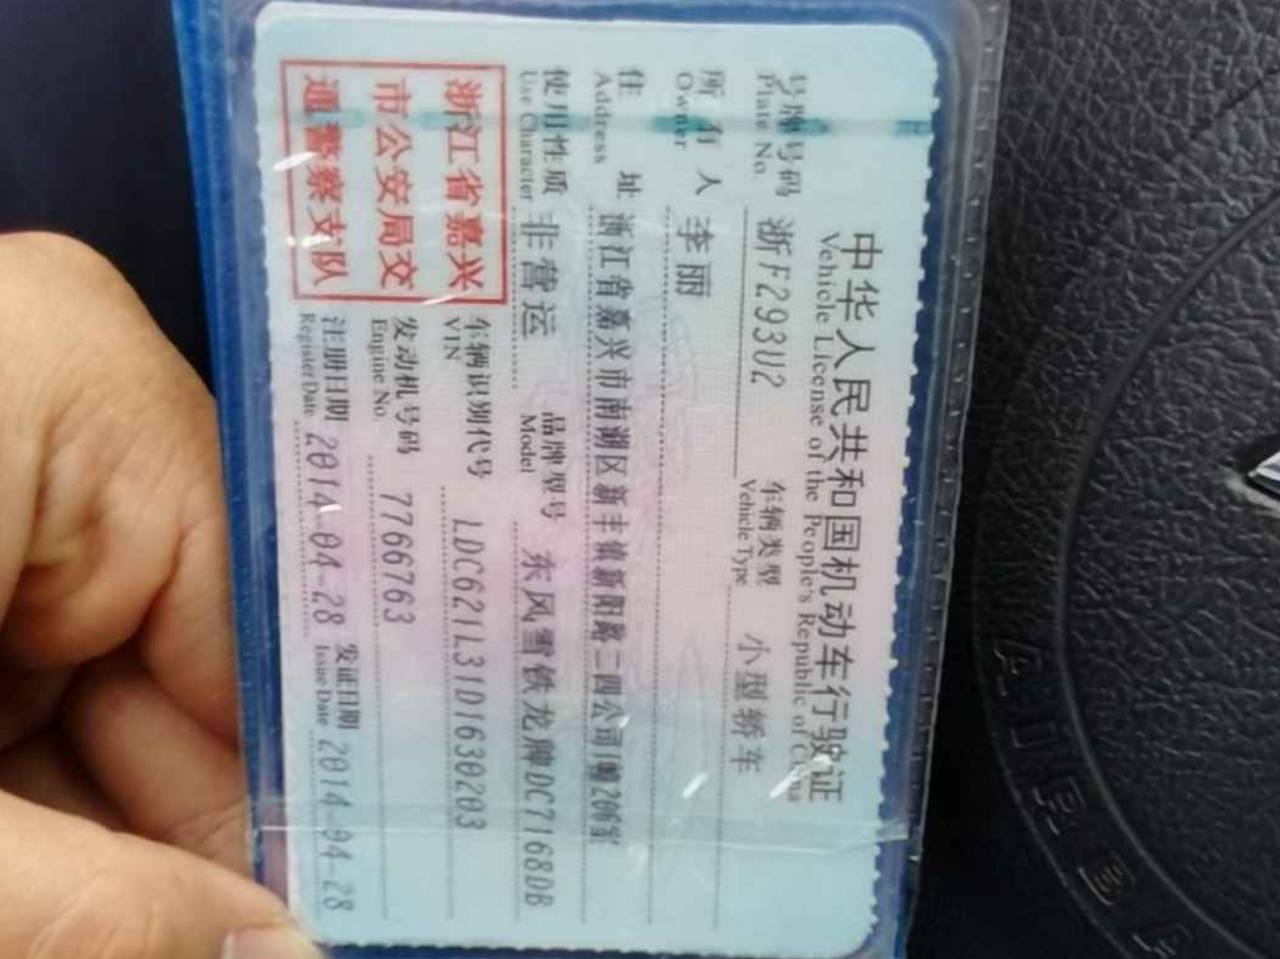 中华人民共和国机动车行驶证
Vehicle License of the People's Republic of China
号牌号码 浙F293U2 车辆类型 小型轿车
Plate No. Vehicle Type
所有人 李丽
Owner
住址 浙江省嘉兴市南湖区新丰镇新阳路二四公司1幢206室
Address
使用性质 非营运 品牌型号 东风雪铁龙牌DC7168DB
Use Character Model
浙江省嘉兴
市公安局交
通警察支队
车辆识别代号 LDC621L31D1630203
VIN
发动机号码 7766763
Engine No.
注册日期 2014-04-28 发证日期 2014-04-28
Register Date Issue Date
AIRBA